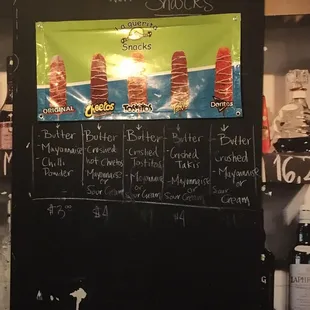 Snacks
La Guerita
Snacks
ORIGINAL
Cheetos
Tostitos
Takis
Doritos
- Butter
- Mayonnaise
- Chilli
Powder
$3.00
Butter
- Crushed
hot Cheetos
- Mayonnaise
or
Sour Cream
$4
- Butter
- Crushed
Tostitos
- Mayonnaise
or
- Sour Cream
- Butter
- Crushed
Takis
- Mayonnaise
or
Sour Cream
$4
- Butter
Crushed
- Mayonnaise
or
Sour
Cream
16,2